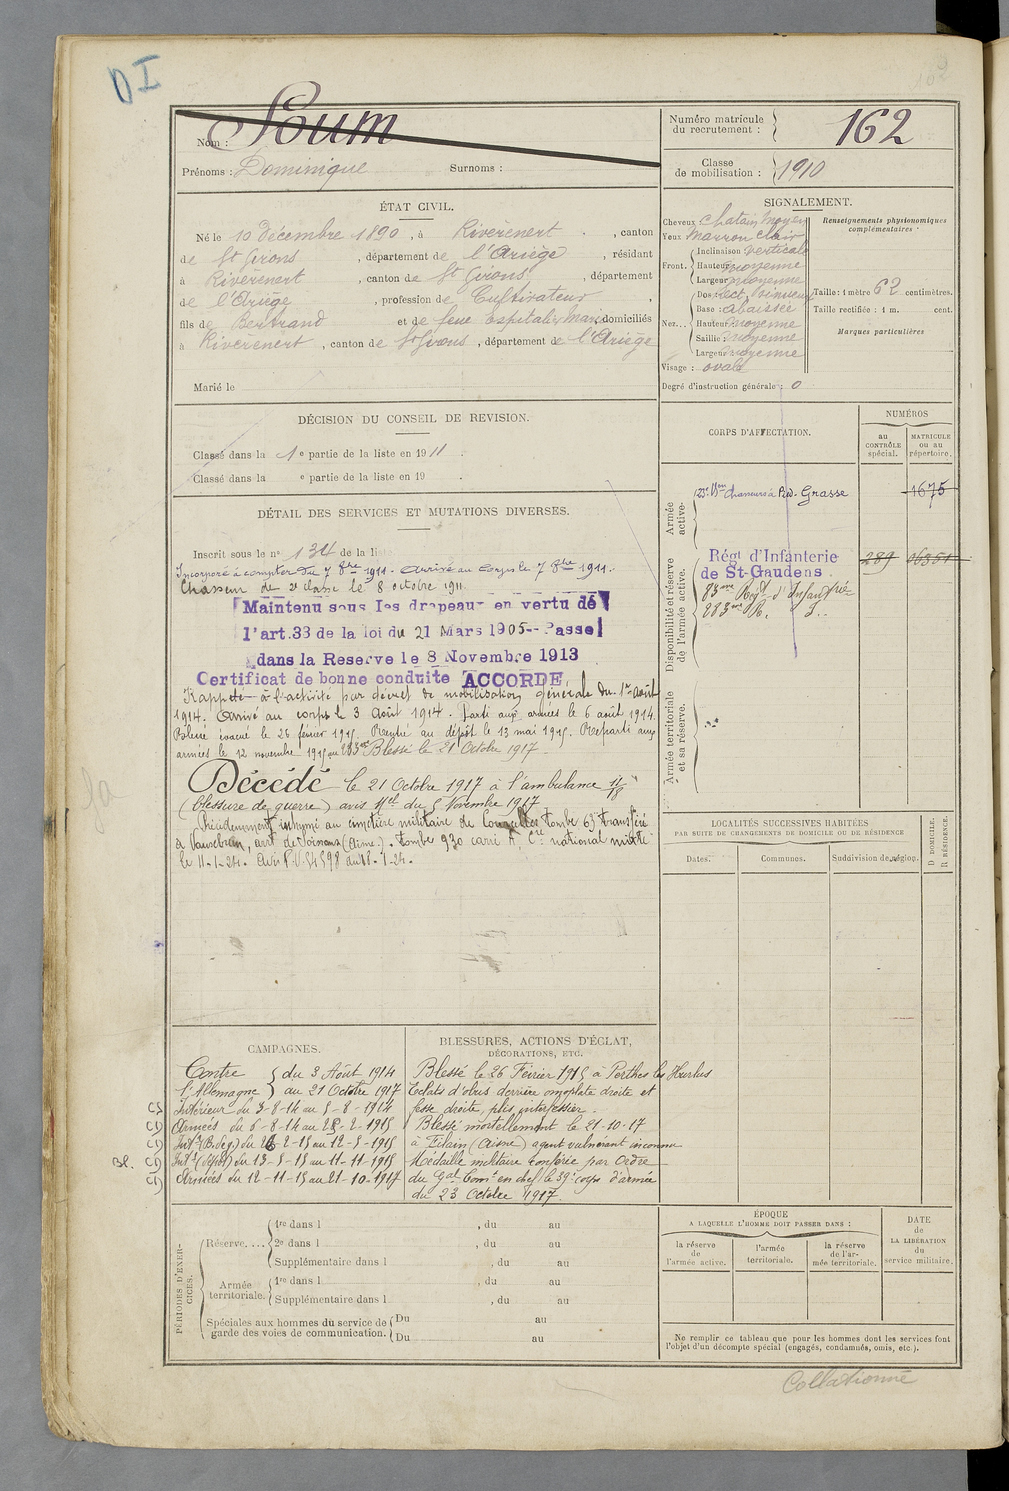 DI
162
Nom : Soum
Prénoms : Dominique Surnoms :
Numéro matricule du recrutement : 162
Classe de mobilisation : 1910
ÉTAT CIVIL.
Né le 10 Décembre 1890, à Rivèrenert, canton
de St Girons, département de l'Ariège, résidant
à Rivèrenert, canton de St Girons, département
de l'Ariège, profession de Cultivateur
fils de Bertrand et de feue Espitalié Marie domiciliés
à Rivèrenert, canton de St Girons, département de l'Ariège
Marié le
SIGNALEMENT.
Cheveux chatain moyen
Yeux Marron clair
Front. Inclinaison verticale
Hauteur moyenne
Largeur moyenne
Nez... Dos : rect. sinueux
Base : abaissée
Hauteur moyenne
Saillie : moyenne
Largeur moyenne
Visage : ovale
Renseignements physionomiques complémentaires :
Taille : 1 mètre 62 centimètres.
Taille rectifiée : 1 m. cent.
Marques particulières
Degré d'instruction générale : 0
DÉCISION DU CONSEIL DE REVISION.
Classé dans la 1e partie de la liste en 1911.
Classé dans la e partie de la liste en 19 .
DÉTAIL DES SERVICES ET MUTATIONS DIVERSES.
Inscrit sous le no 134 de la liste
Incorporé à compter du 7 8bre 1911. Arrivé au corps le 7 8bre 1911.
Chasseur de 2e classe le 8 octobre 1911.
Maintenu sous les drapeaux en vertu de
l'art.33 de la loi du 21 Mars 1905 -- Passe
dans la Reserve le 8 Novembre 1913
Certificat de bonne conduite ACCORDÉ,
Rappelé à l'activité par décret de mobilisation générale du 1er août
1914. Arrivé au corps le 3 Août 1914. Parti aux armées le 6 août 1914.
Blessé évacué le 26 février 1915. Rentré au dépôt le 13 mai 1915. Reparti aux
armées le 12 novembre 1915 au 283me Blessé le 21 Octobre 1917.
Décédé le 21 Octobre 1917 à l'ambulance
(blessure de guerre) avis Mel du 5 Novembre 1917
Précédemment inhumé au cimetière militaire de Courcelles tombe 63 transféré
à Vauxbuin, arrt de Soissons (Aisne). tombe 930 carré A, Cre national mixte
le 11-1-24. Avis P.V. 54598 du 18-1-24.
CORPS D'AFFECTATION.
NUMÉROS
au CONTRÔLE spécial.
MATRICULE ou au répertoire.
Armée active.
23e Bon Chasseurs à Pied. Grasse 1675
Disponibilité et réserve de l'armée active.
Régt d'Infanterie 289
de St-Gaudens
83me Régt d'Infanterie
283me R. I.
Armée territoriale et sa réserve.
LOCALITÉS SUCCESSIVES HABITÉES
PAR SUITE DE CHANGEMENTS DE DOMICILE OU DE RÉSIDENCE
Dates. Communes. Subdivision de région.
D DOMICILE. R RÉSIDENCE.
CAMPAGNES.
Contre l'Allemagne du 3 Août 1914 au 21 Octobre 1917
Intérieur du 3-8-14 au 5-8-1914
Armées du 6-8-14 au 25-2-1915
Intr (B. de g.) du 26-2-15 au 12-5-1915
Intr (dépôt) du 13-5-15 au 11-11-1915
Armées du 12-11-15 au 21-10-1917
BLESSURES, ACTIONS D'ÉCLAT,
DÉCORATIONS, ETC.
Blessé le 26 Février 1915 à Perthes les Hurlus
Eclats d'obus derrière omoplate droite et
fesse droite, plis interfessier.
Blessé mortellement le 21-10-17
à (Aisne) agent vulnérant inconnu
Médaille militaire conférée par Ordre
du Gal Comt en chef le 39e corps d'armée
du 23 Octobre 1917.
PÉRIODES D'EXERCICES.
Réserve.... 1re dans l , du au
2e dans l , du au
Supplémentaire dans l , du au
Armée territoriale. 1re dans l , du au
Supplémentaire dans l , du au
Spéciales aux hommes du service de garde des voies de communication. Du au
Du au
ÉPOQUE
A LAQUELLE L'HOMME DOIT PASSER DANS :
la réserve de l'armée active.
l'armée territoriale.
la réserve de l'armée territoriale.
DATE de LA LIBÉRATION du service militaire.
Ne remplir ce tableau que pour les hommes dont les services font
l'objet d'un décompte spécial (engagés, condamnés, omis, etc.).
Collationné